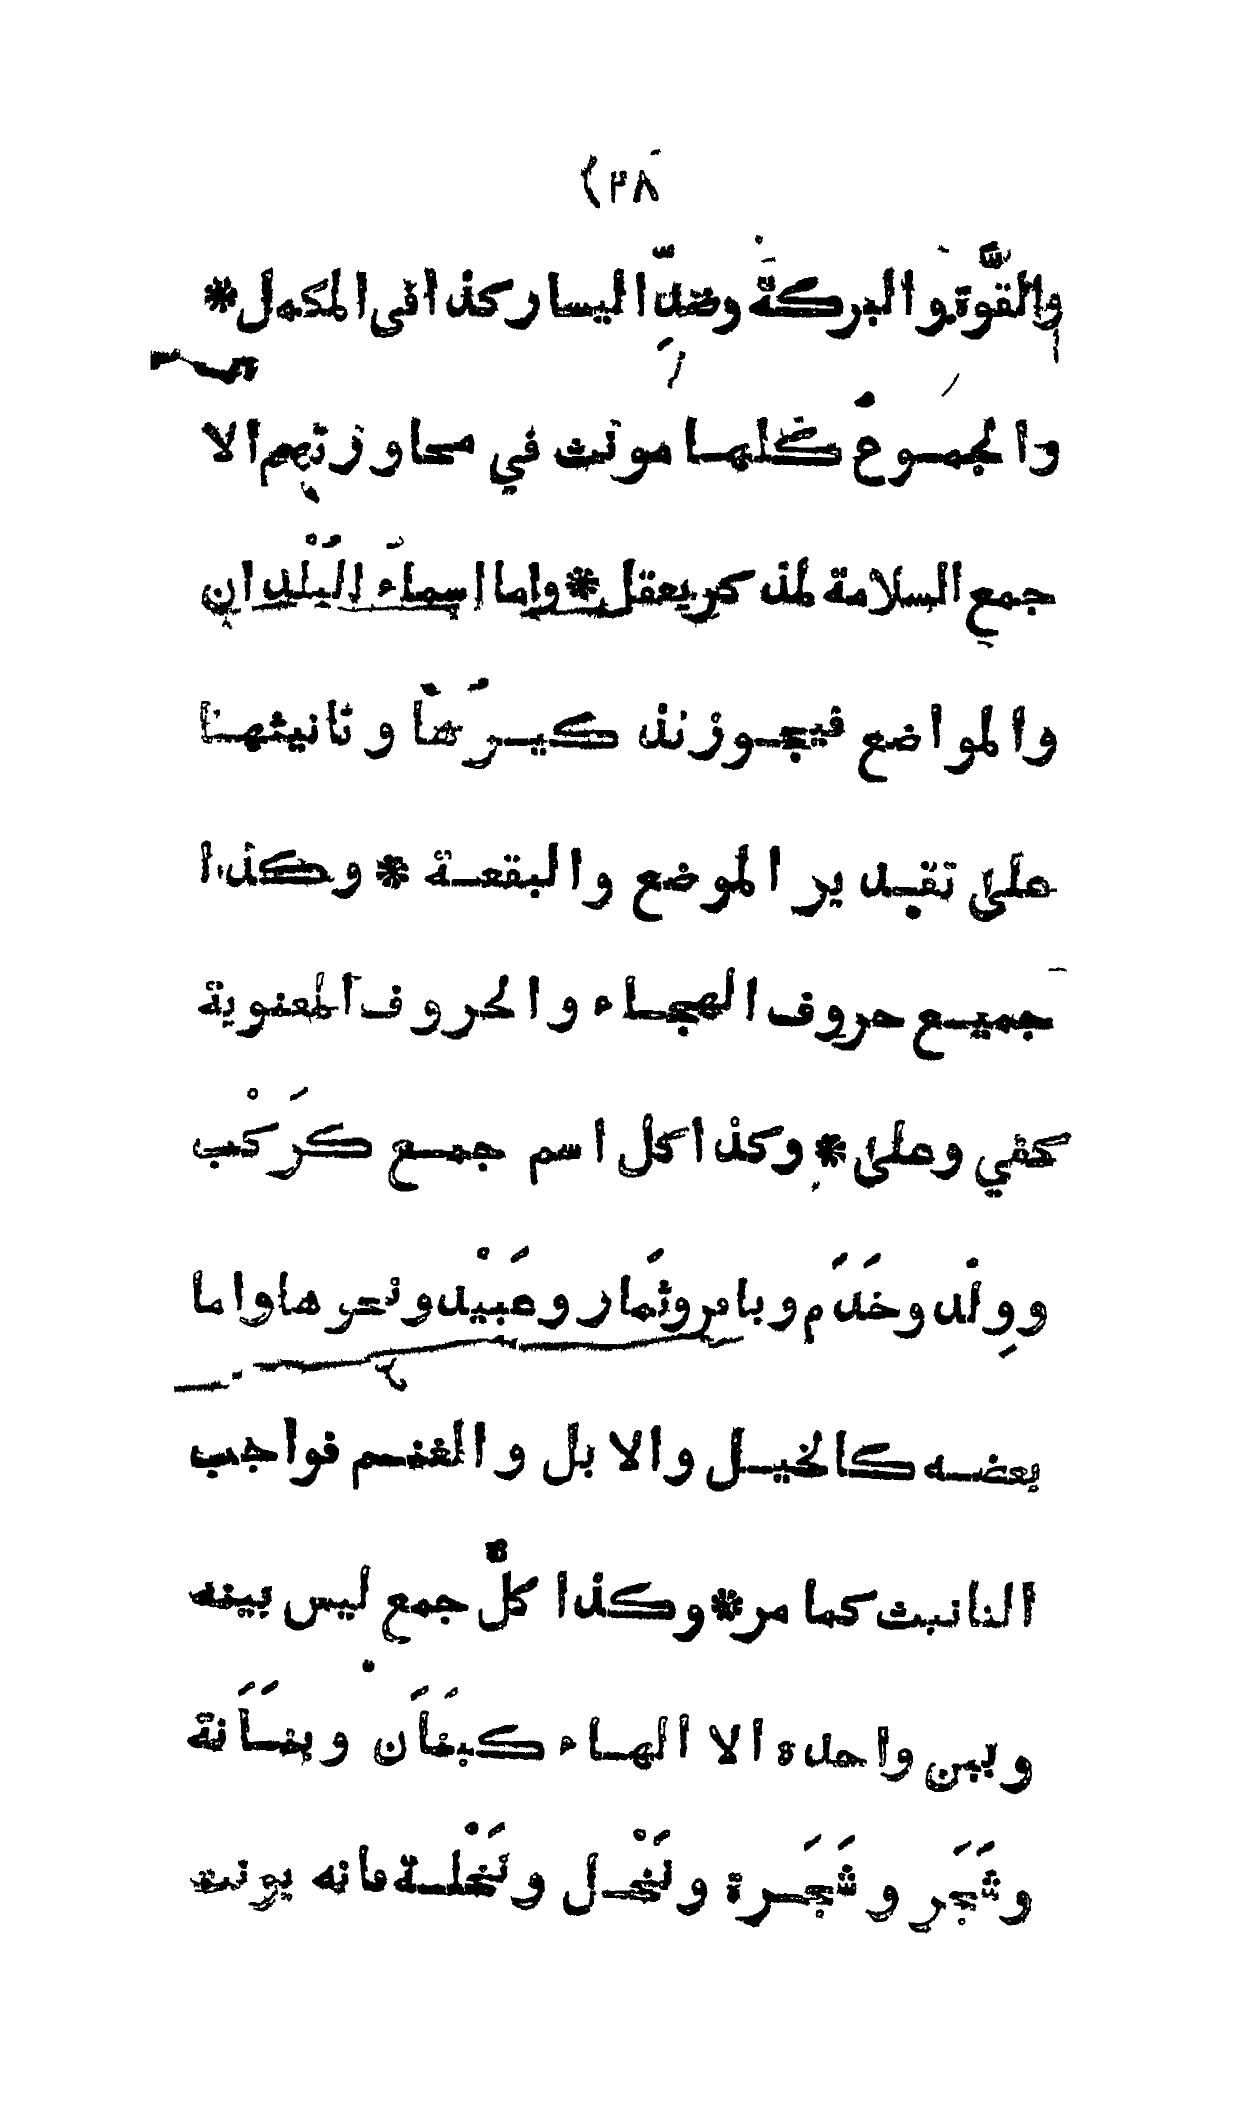 (٢٨
والقوَّة والبركة وضِدّ اليسار كذا في المكمل *
والجموع كلها مونث في محاوزتهم الا
جمع السلامة لمذكر يعقل * واما اسماءَ البُلْدان
والمواضع فيجوز تذكيرَها وتانيثها
على تقدير الموضع والبقعة * وكذا
جميع حروف الهجاء والحروف المعنوية
كفي وعلى * وكذا كل اسم جمع كرَكْب
ووِلْد وخَدَم وباقر وثمَار وعَبْيد ونحوها واما
بعضه كالخيل والابل والغنم فواجب
التانيث كما مر * وكذا كلّ جمع ليس بينه
وبين واحده الا الهاء كبنَاَن وبنَاَنة
وشَجَر وشَجَرة ونَخْل ونَخْلة فانه يونث